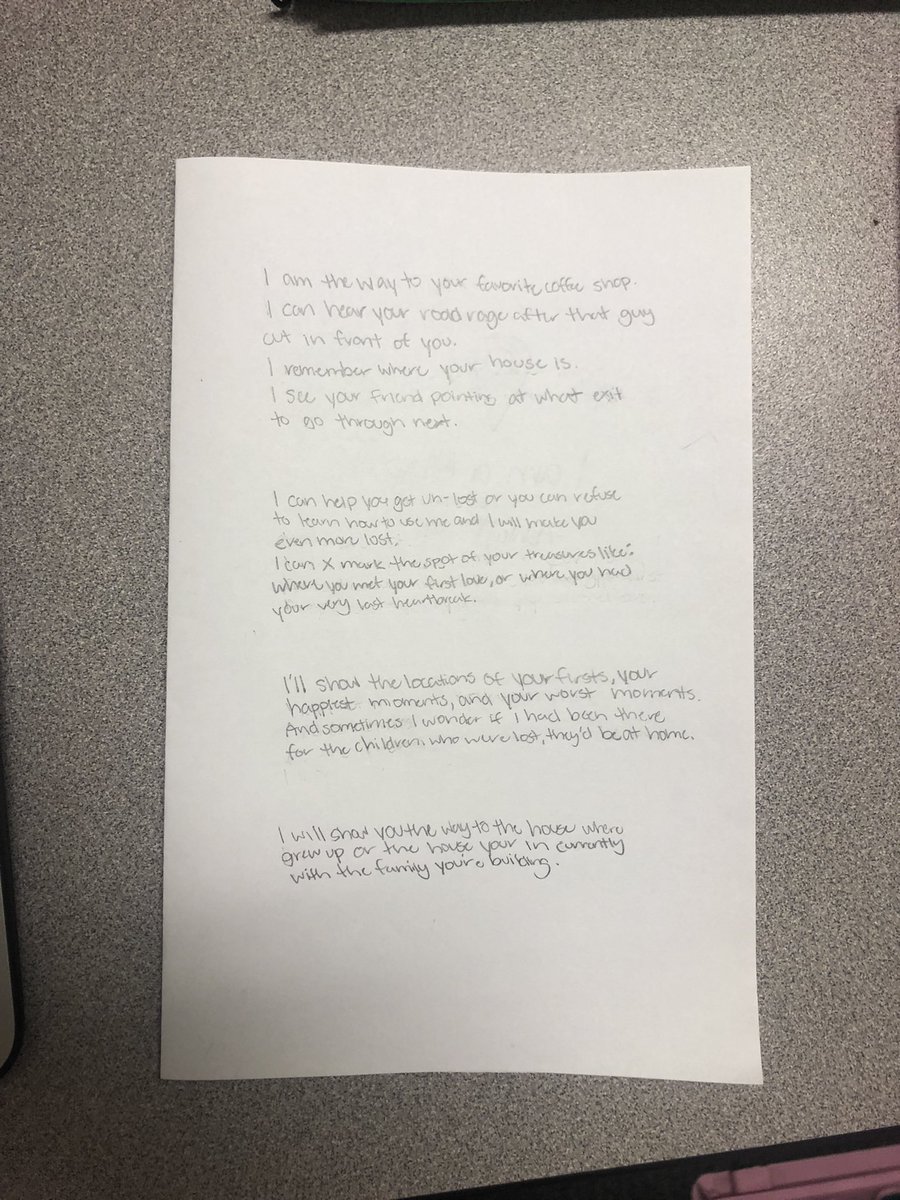 I am the way to your favorite coffee shop.
I can hear your road rage after that guy
cut in front of you.
I remember where your house is.
I see your friend pointing at what exit
to go through next.
I can help you get un-lost or you can refuse
to learn how to use me and I will make you
even more lost.
I can X mark the spot of your treasures like:
where you met your first love, or where you had
your very last heartbreak.
I'll show the locations of your firsts, your
happiest moments, and your worst moments.
And sometimes I wonder if I had been there
for the children who were lost, they'd be at home.
I will show you the way to the house where
grew up or the house your in currently
with the family you're building.